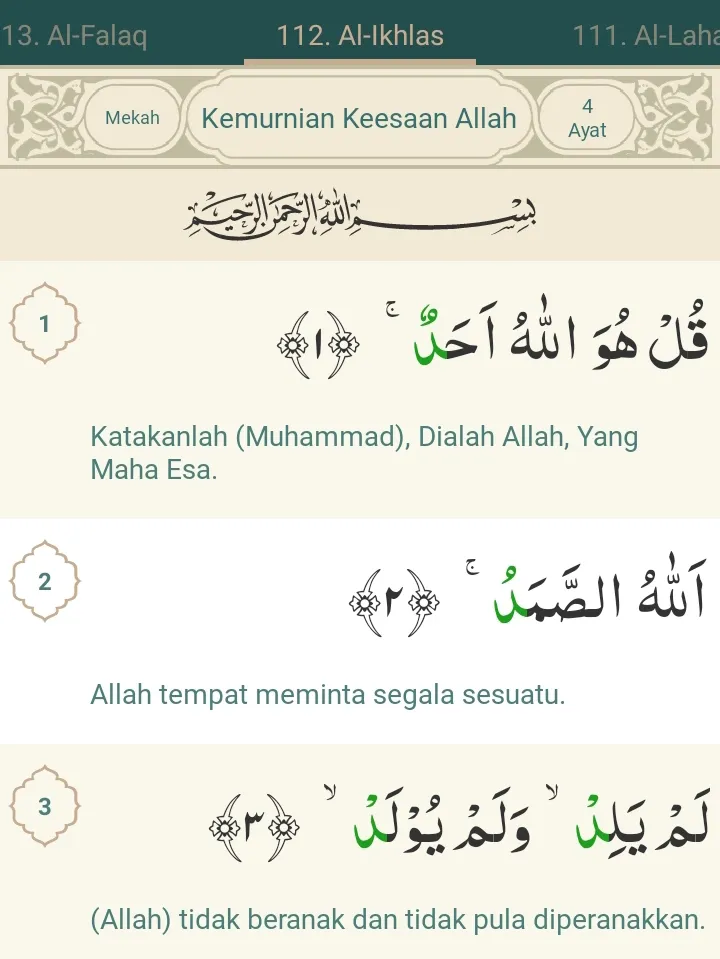 13. Al-Falaq 112. Al-Ikhlas 111. Al-Laha
Mekah
Kemurnian Keesaan Allah
4
Ayat
بِسْمِ اللّٰهِ الرَّحْمٰنِ الرَّحِيْمِ
1
قُلْ هُوَ اللّٰهُ اَحَدٌ ۚ ﴿١﴾
Katakanlah (Muhammad), Dialah Allah, Yang
Maha Esa.
2
اَللّٰهُ الصَّمَدُ ۚ ﴿٢﴾
Allah tempat meminta segala sesuatu.
3
لَمْ يَلِدْ ۙ وَلَمْ يُوْلَدْ ۙ ﴿٣﴾
(Allah) tidak beranak dan tidak pula diperanakkan.